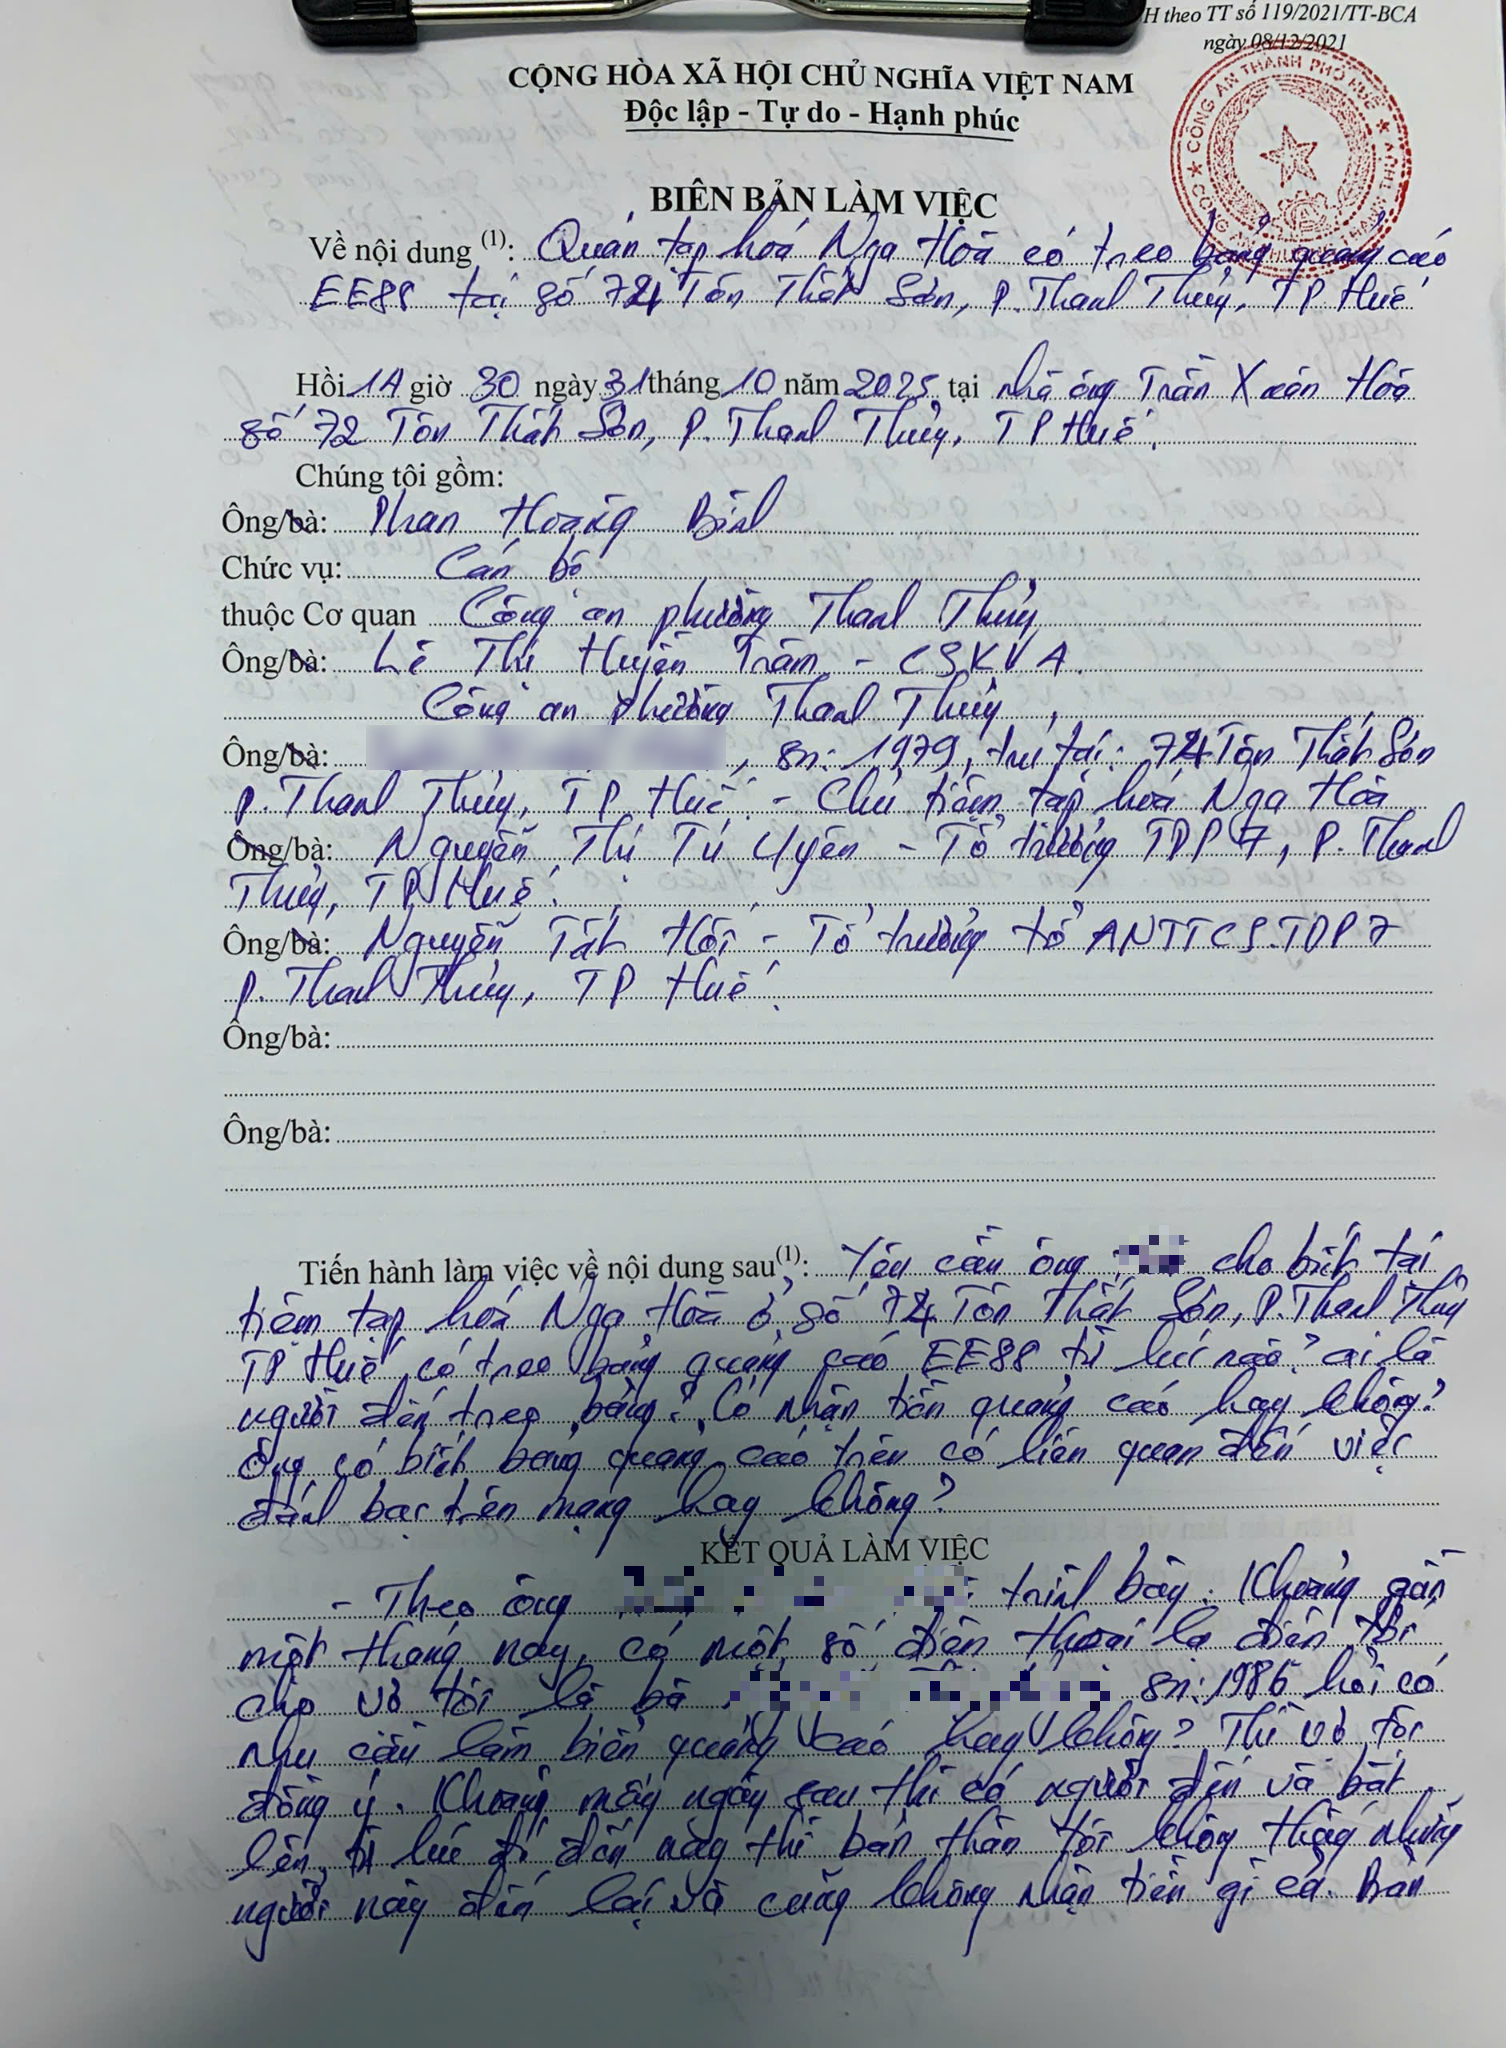 H theo TT số 119/2021/TT-BCA
ngày 08/12/2021
CÔNG AN THÀNH PHỐ HUẾ
CỘNG HÒA XÃ HỘI CHỦ NGHĨA VIỆT NAM
Độc lập - Tự do - Hạnh phúc
BIÊN BẢN LÀM VIỆC
Về nội dung (1): Quán tạp hoá Nga Hoà có treo bảng quảng cáo
EE88 tại số 74 Tôn Thất Sơn, P. Thanh Thủy, TP Huế
Hồi 14 giờ 30 ngày 31 tháng 10 năm 2025 tại nhà ông Trần Xuân Hoà
số 72 Tôn Thất Sơn, P. Thanh Thủy, TP Huế.
Chúng tôi gồm:
Ông/bà: Phan Hoàng Bình
Chức vụ: Cán bộ
thuộc Cơ quan Công an phường Thanh Thủy
Ông/bà: Lê Thị Huyền Trâm - CSKVA
Công an phường Thanh Thủy
Ông/bà: , sn: 1979, trú tại: 74 Tôn Thất Sơn
P. Thanh Thủy, TP Huế - Chủ tiệm tạp hoá Nga Hoà
Ông/bà: Nguyễn Thị Tú Uyên - Tổ trưởng TDP 7, P. Thanh
Thủy, TP Huế.
Ông/bà: Nguyễn Tất Hối - Tổ trưởng tổ ANTTCS TDP 7
P. Thanh Thủy, TP Huế.
Ông/bà:
Ông/bà:
Tiến hành làm việc về nội dung sau(1): Yêu cầu ông cho biết tại
tiệm tạp hoá Nga Hoà ở số 74 Tôn Thất Sơn, P. Thanh Thủy
TP Huế có treo bảng quảng cáo EE88 từ lúc nào? ai là
người đến treo bảng? Có nhận tiền quảng cáo hay không?
Ông có biết bảng quảng cáo trên có liên quan đến việc
đánh bạc trên mạng hay không?
KẾT QUẢ LÀM VIỆC
- Theo ông trình bày: Khoảng gần
một tháng nay, có một số điện thoại lạ điện tới
cho vợ tôi là bà sn: 1986 hỏi có
nhu cầu làm biển quảng cáo hay không? Thì vợ tôi
đồng ý. Khoảng mấy ngày sau thì có người đến và bắt
lên, từ lúc đó đến nay thì bản thân tôi không thấy những
người này đến lại và cũng không nhận tiền gì cả. Bản